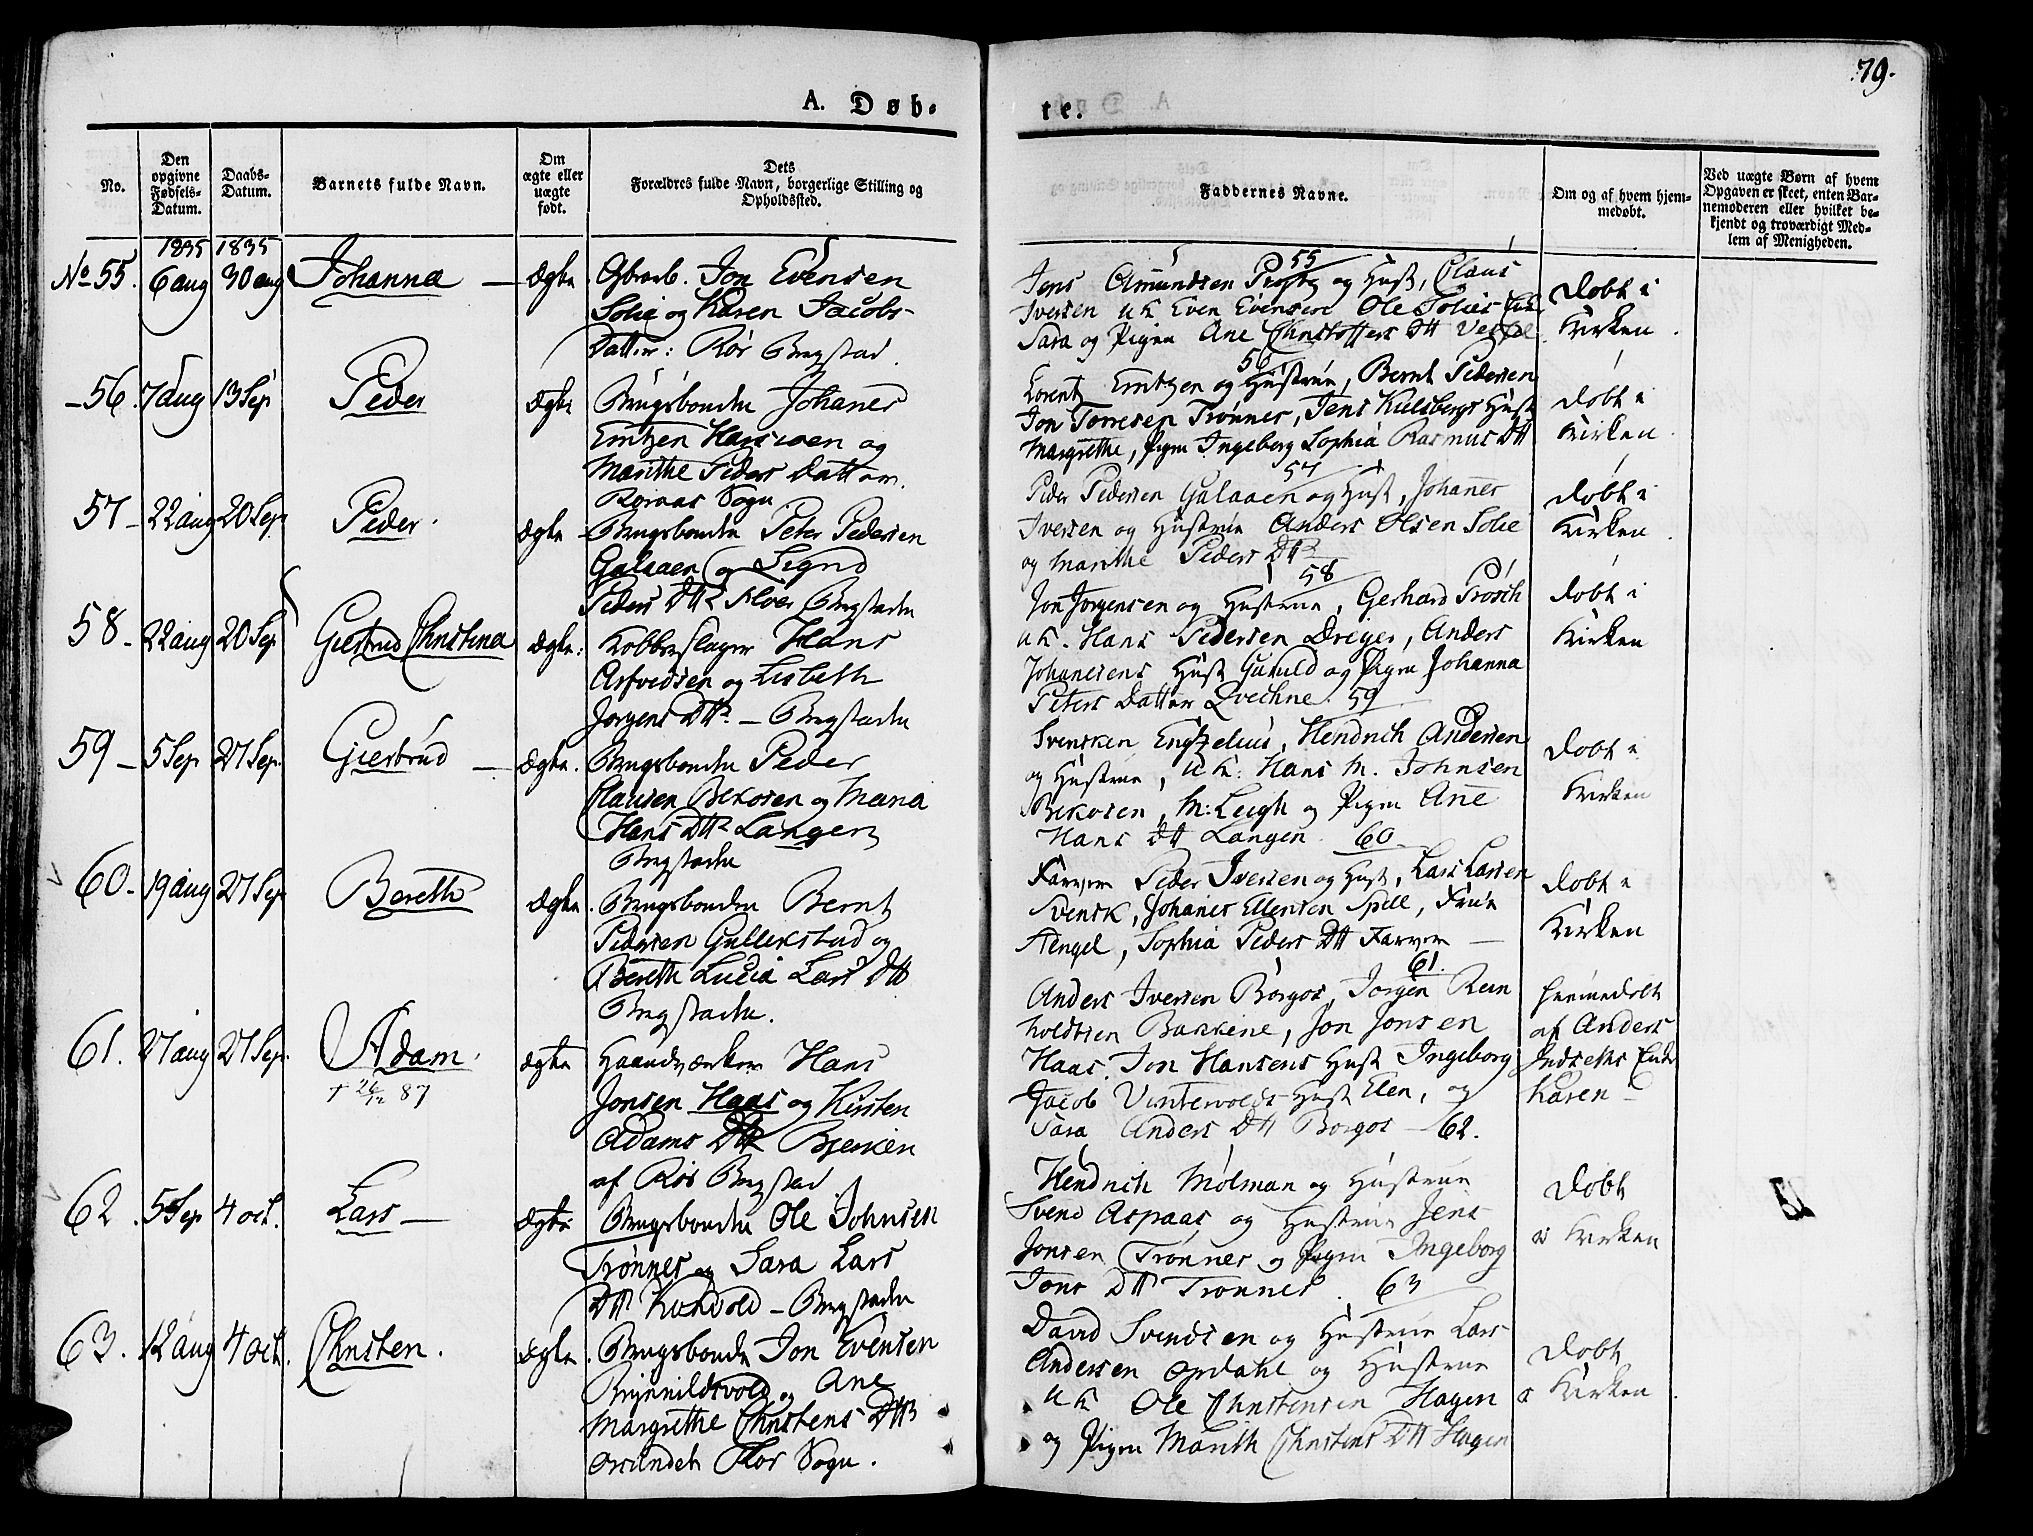 79.
A. Døb-
te.
No.
Den opgivne Fødsels-Datum.
Daabs-Datum.
Barnets fulde Navn.
Om ægte eller uægte født.
Dets
Forældres fulde Navn, borgerlige Stilling og
Opholdssted.
Faddernes Navne.
Om og af hvem hjem-
medøbt.
Ved uægte Børn af hvem
Opgaven er skeet, enten Bar-
nemoderen eller hvilket be-
kjendt og troværdigt Med-
lem af Menigheden.
1835 1835
No 55. 6 aug 30 aug Johanna — Ægte Jon Evensen
Solie og Karen Jacobs-
Datter: Rør Bergstad.
55
Jens Amundsen og Hust, Claus
Iversen uk Even Evensen Ole Solies
Sara og Pigen Ane Christoffers Dtt
Døbt i
Kirken.
56. 7 aug 13 Sep Peder Ægte Brugsbonden Johanes
Emtzen og
Marithe Peders Datter.
Røraas Sogn
56
Lorentz Emtzen og Hustrue, Bernt Pedersen
Jon Tørresen Trønnes, Jens Kulsbergs Hust
Margrethe, Pigen Ingeborg Sophia Rasmus Dtt
Døbt i
Kirken.
57 - 22 aug 20 Sep Peder. Ægte - Brugsbonden Peter Pedersen
Galaaen og Sigrid
Peders Dtr Floer Bergstaden
57
Peder Pedersen Galaaen og Hust, Johanes
Iversen og Hustrue Anders Olsen Solie
og Marithe Peders Dtt
Døbt i
Kirken.
58 - 22 aug 20 Sep Giertrud Christina Ægte: Kobberslager Hans
Arfvedsen og Lisbeth
Jørgens Dtr - Bergstaden
58
Jon Jørgensen og Hustrue, Gerhard Prøsch
uk. Hans Pedersen Dreyer, Anders
Johanesens Hust Guruld og Pigen Johanna
Peters Datter Qvechne.
Døbt i
Kirken
59 - 5 Sep 27 Sep. Giertrud — Ægte. Brugsbonden Peder
Clausen Bekosen og Maria
Hans Dtr Langen
Bergstaden
59
Svensken Engzelius, Hendrich Andersen
og Hustrue, uk: Hans M. Johnsen
Bekosen, M: Leigh og Pigen Ane
Hans Dtt Langen
Døbt i
Kirken
60. - 19 aug 27 Sep Bereth Ægte. Brugsbonden Bernt
Pedersen Gullikstad og
Bereth Lucia Lars Dtt
Bergstaden.
60
Farver Peder Iversen og Hust, Lars Larsen
Svensk, Johanes Ellensen Spell, Frue
Hengel, Sophia Peders Dtt Farver —
Døbt i
Kirken
61. 27 aug 27 Sep. Adam. Ægte Haandværker Hans
† 26/12 87
Jonsen Haas og Kirsten
Adams Dtr Bjerken
af Rørs Bergstad
61.
Anders Iversen Borgos, Jørgen Rein
holdtsen Bakkene, Jon Jonsen
Haas, Jon Hansens Hust Ingeborg
Jacob Vintervolds Hust Elen, og
Sara Anders Dtt Borgos
hjemmedøbt
af Anders
Indseths Enke
Karen
62. 5 Sep 4 oct. Lars — Ægte: Brugsbonden Ole Johnsen
Trønnes og Sara Lars
Dtr Kokvold - Bergstaden
62.
Hendrich Mølman og Hustrue
Svend Aspaas og Hustrue Jens
Jonsen Trønnes og Pigen Ingeborg
Jons Dtt Trønnes.
Døbt
i Kirken
63. 12 aug 4 oct. Christen. Ægte. Brugsbonde Jon Evensen
Brynnildsvold og Ane
Margrethe Christens Dtr
Sogn.
63
David Svendsen og Hustrue Lars
Andersen Opdahl og Hustrue
uk Ole Christensen Hagen
og Pigen Marith Christens Dtt Hagen
Døbt
i Kirken